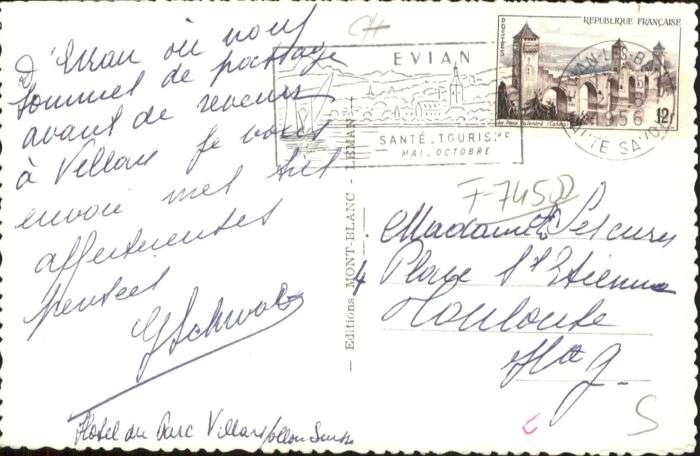 D'Evian où nous
sommes de passage
avant de revenir
à Villars je vous
envoie mes très
affectueuses
pensées
GSchwob
Hotel du Parc Villars sollon Suisse
CH
EVIAN
SANTÉ_TOURISME
MAI_OCTOBRE
REPUBLIQUE FRANÇAISE
POSTES
Le Pont Valentré (Cahors)
12F
1956
HTE SAVOIE
Editions MONT-BLANC - LEMAN
F-7458
Madame
4 Place St Etienne
Toulouse
Hte G.
S